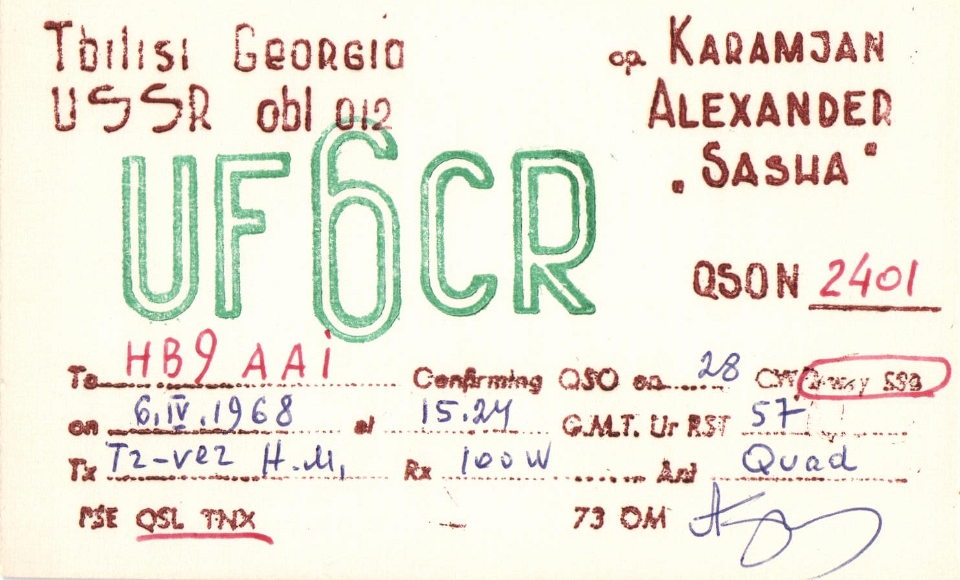 Tbilisi Georgia
USSR obl 012
op. KARAMJAN
ALEXANDER
„SASHA"
UF6CR
QSO N 2401
To HB9AAi Confirming QSO on 28 CW 2-way SSB
on 6.IV.1968 at 15.24 G.M.T. Ur RST 57
Tx Tz-vez H.M, Rx 100W Ant Quad
PSE QSL TNX 73 OM